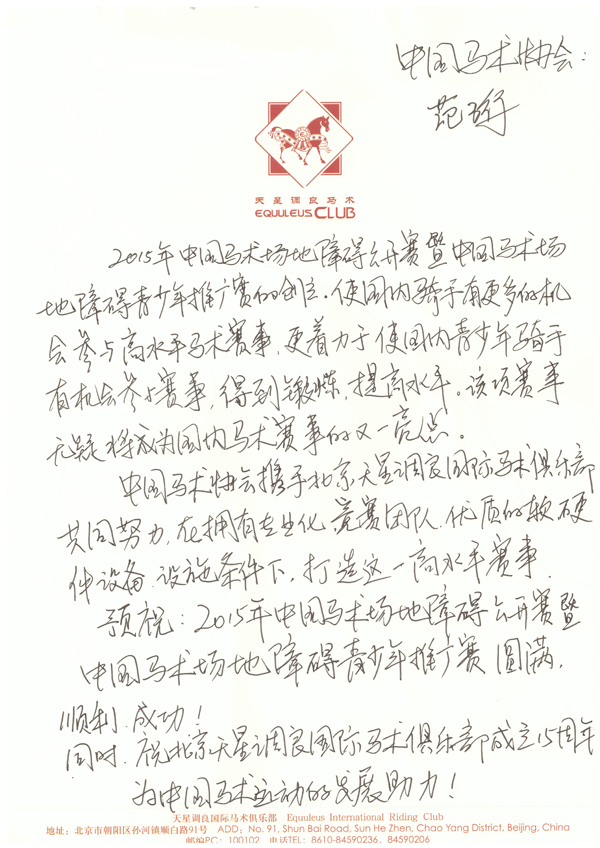 中国马术协会：
范
天星调良马术
EQUULEUS CLUB
2015年中国马术场地障碍公开赛暨中国马术场
地障碍青少年推广赛的创立，使国内骑手有更多的机
会参与高水平马术赛事，更着力于使国内青少年骑手
有机会参与赛事，得到锻炼，提高水平。该项赛事
无疑将成为国内马术赛事的又一亮点。
中国马术协会携手北京天星调良国际马术俱乐部
共同努力，在拥有专业化竞赛团队、优质的软硬
件设备、设施条件下，打造这一高水平赛事.
预祝：2015年中国马术场地障碍公开赛暨
中国马术场地障碍青少年推广赛圆满，
顺利.成功！
同时，祝北京天星调良国际马术俱乐部成立15周年
为中国马术运动的发展助力！
天星调良国际马术俱乐部 Equuleus International Riding Club
地址：北京市朝阳区孙河镇顺白路91号 ADD：No. 91, Shun Bai Road, Sun He Zhen, Chao Yang District, Beijing, China
邮编PC：100102 电话TEL：8610-84590236、84590206